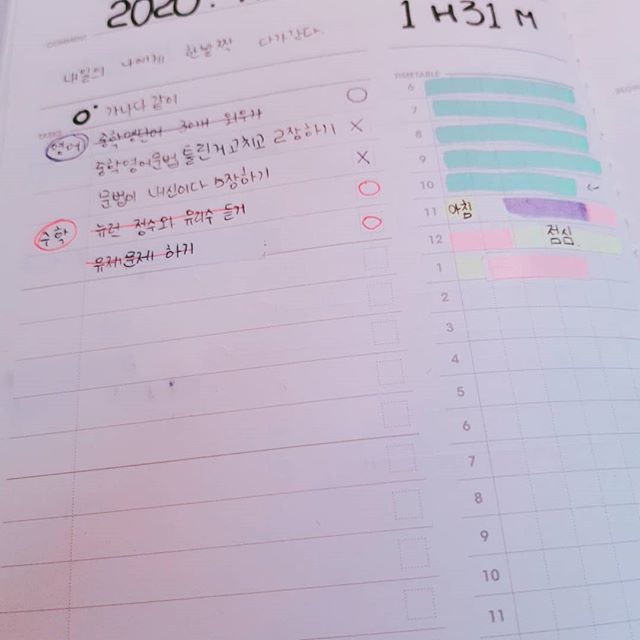 2020.
1H31M
COMMENT
내일의 나에게 한발짝 다가간다.
가나다 같이
TASKS
영어
중학영단어 30개 외우기
중학영어문법 틀린거고치고 2장하기 X
문법이 내신이다 5장하기 X
수학
뉴런 정수와 유리수 듣기
유제문제 하기
TIMETABLE
6
7
8
9
10
11 아침
12 점심
1
2
3
4
5
6
7
8
9
10
11